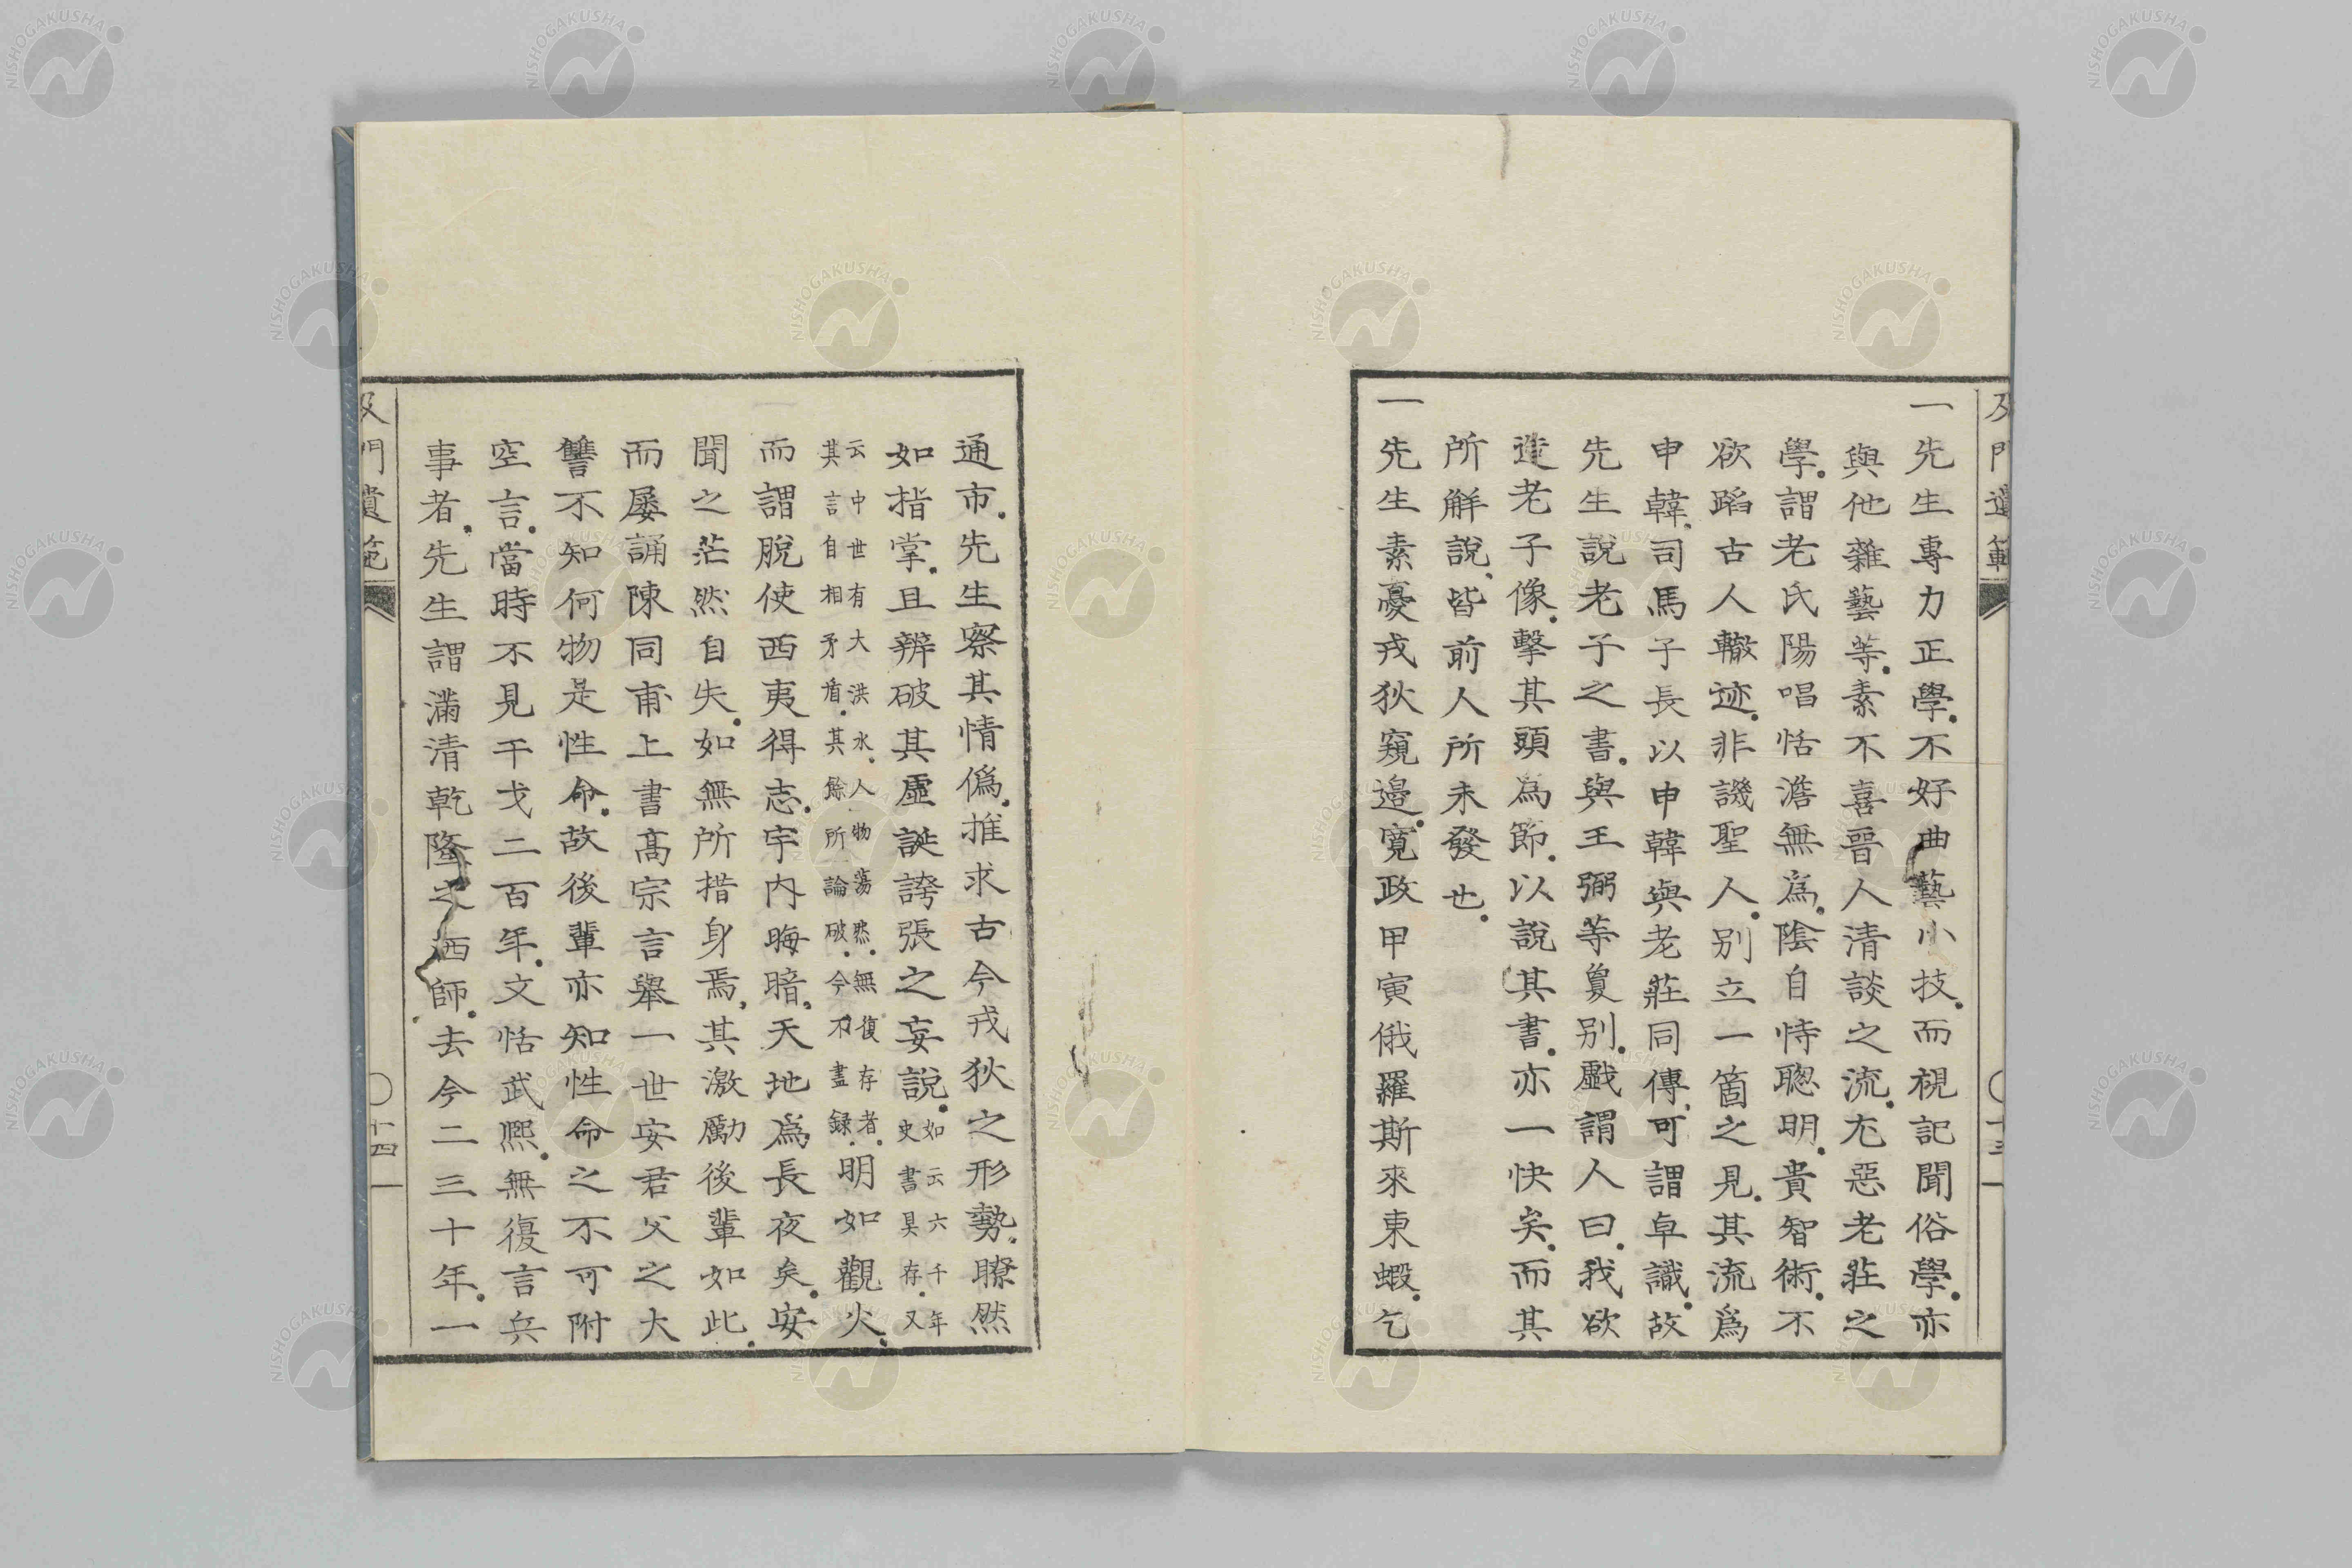 一先生專力正學。不好曲藝小技。而視記聞俗學。亦
與他雜藝等。素不喜晉人清談之流。尤惡老莊之
學。謂老氏陽唱恬澹無為。陰自恃聰明。貴智術。不
欲蹈古人轍迹。非譏聖人。別立一箇之見。其流爲
申韓。司馬子長以申韓與老莊同傳。可謂卓識。故
先生說老子之書。與王弼等夐别。戲謂人曰。我欲
造老子像。擊其頭為節。以說其書。亦一快矣。而其
所解說。皆前人所未發也。
一先生素憂戎狄窺邉。寬政甲寅俄羅斯來東蝦。乞
及門遺範
十三
通市。先生察其情僞。推求古今戎狄之形勢。瞭然
如指掌。且辨破其虛誕誇張之妄說。如云六千年史書具存。又
云中世有大洪水、人物蕩然。無復存者。其言自相矛盾。其餘所論破。今不盡録。明如觀火。
而謂脫使西夷得志。宇内晦暗。天地爲長夜矣。安
聞之茫然自失。如無所措身焉。其激勵後輩如此。
而屡誦陳同甫上書髙宗言舉一世安君父之大
讐不知何物是性命。故後輩亦知性命之不可附
空言。當時不見干戈二百年。文恬武熈。無復言兵
事者。先生謂滿清乾隆之洒師。去今二三十年。一
及門遺範
十四
NISHOGAKUSHA